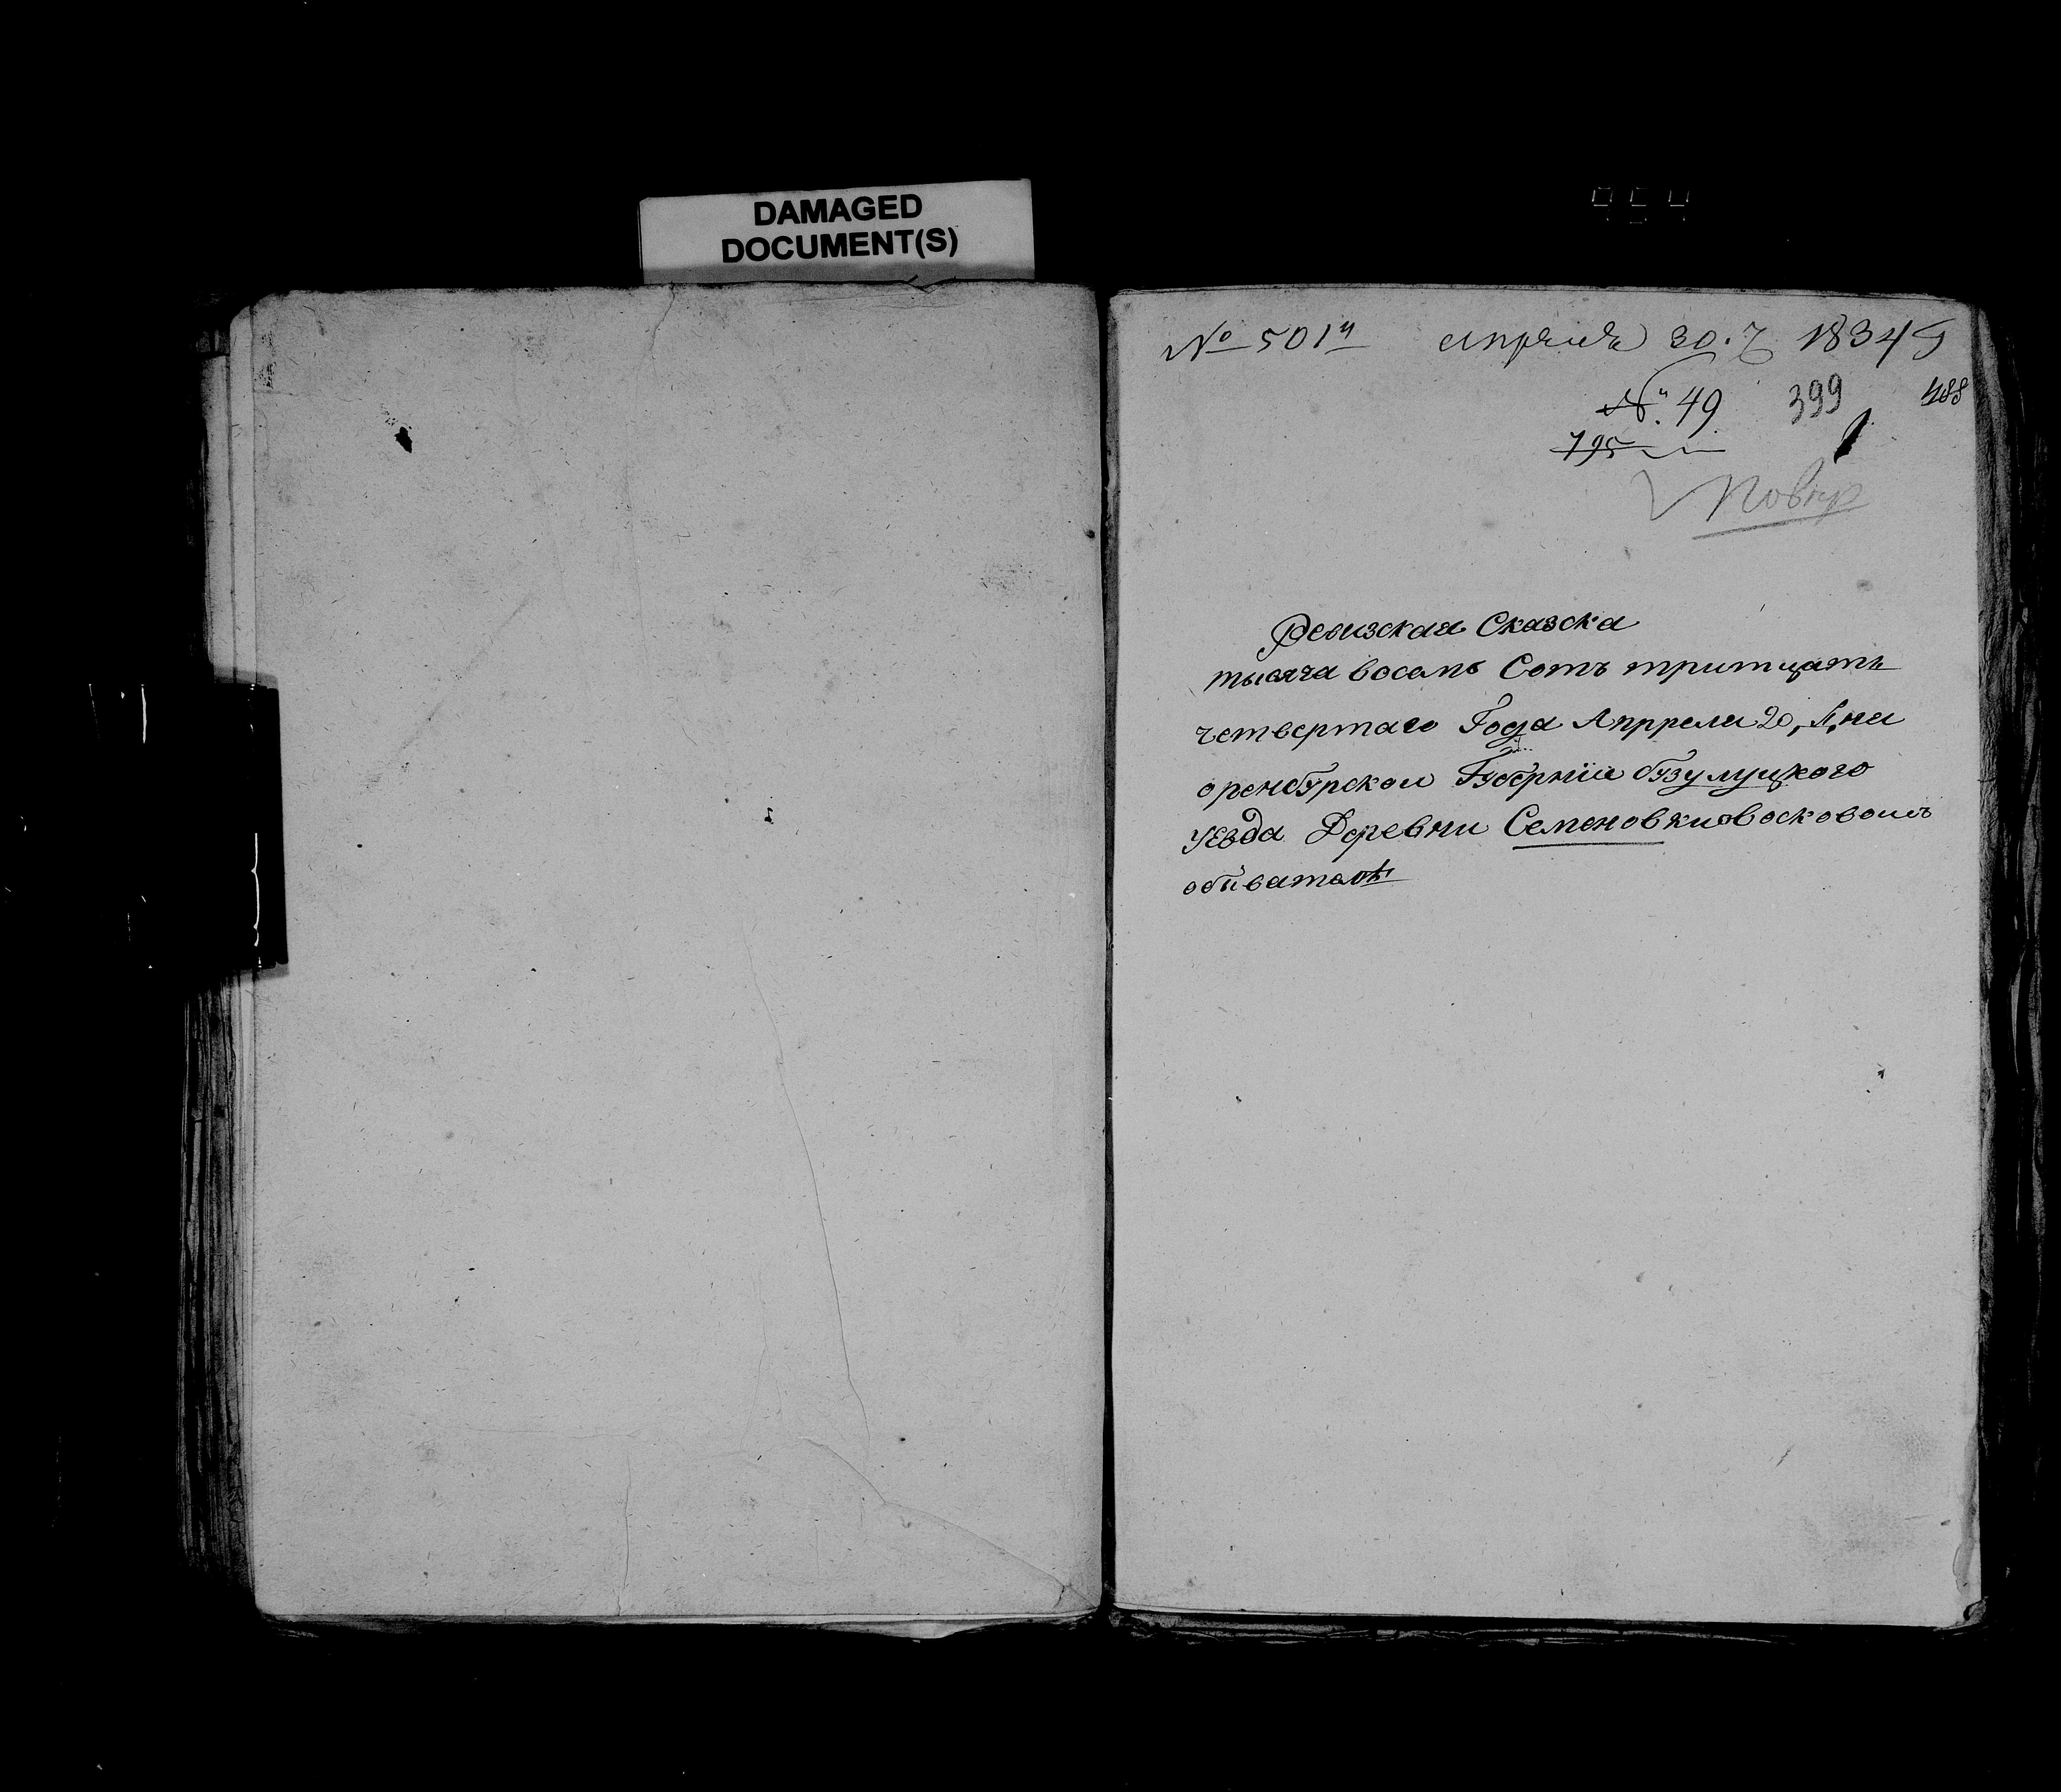 DAMAGED
DOCUMENT(S)
954
№ 501й Апреля 30. ч 1834 г
№ 49 399 488
795
Повер
Ревизская Сказска
тысяча восемь Сотъ тритцать
четвертаго Года Аппрели 20, дни
оренбурскои Губернiи бузулуцкого
уезда Деревни Семеновки
обывателѣ